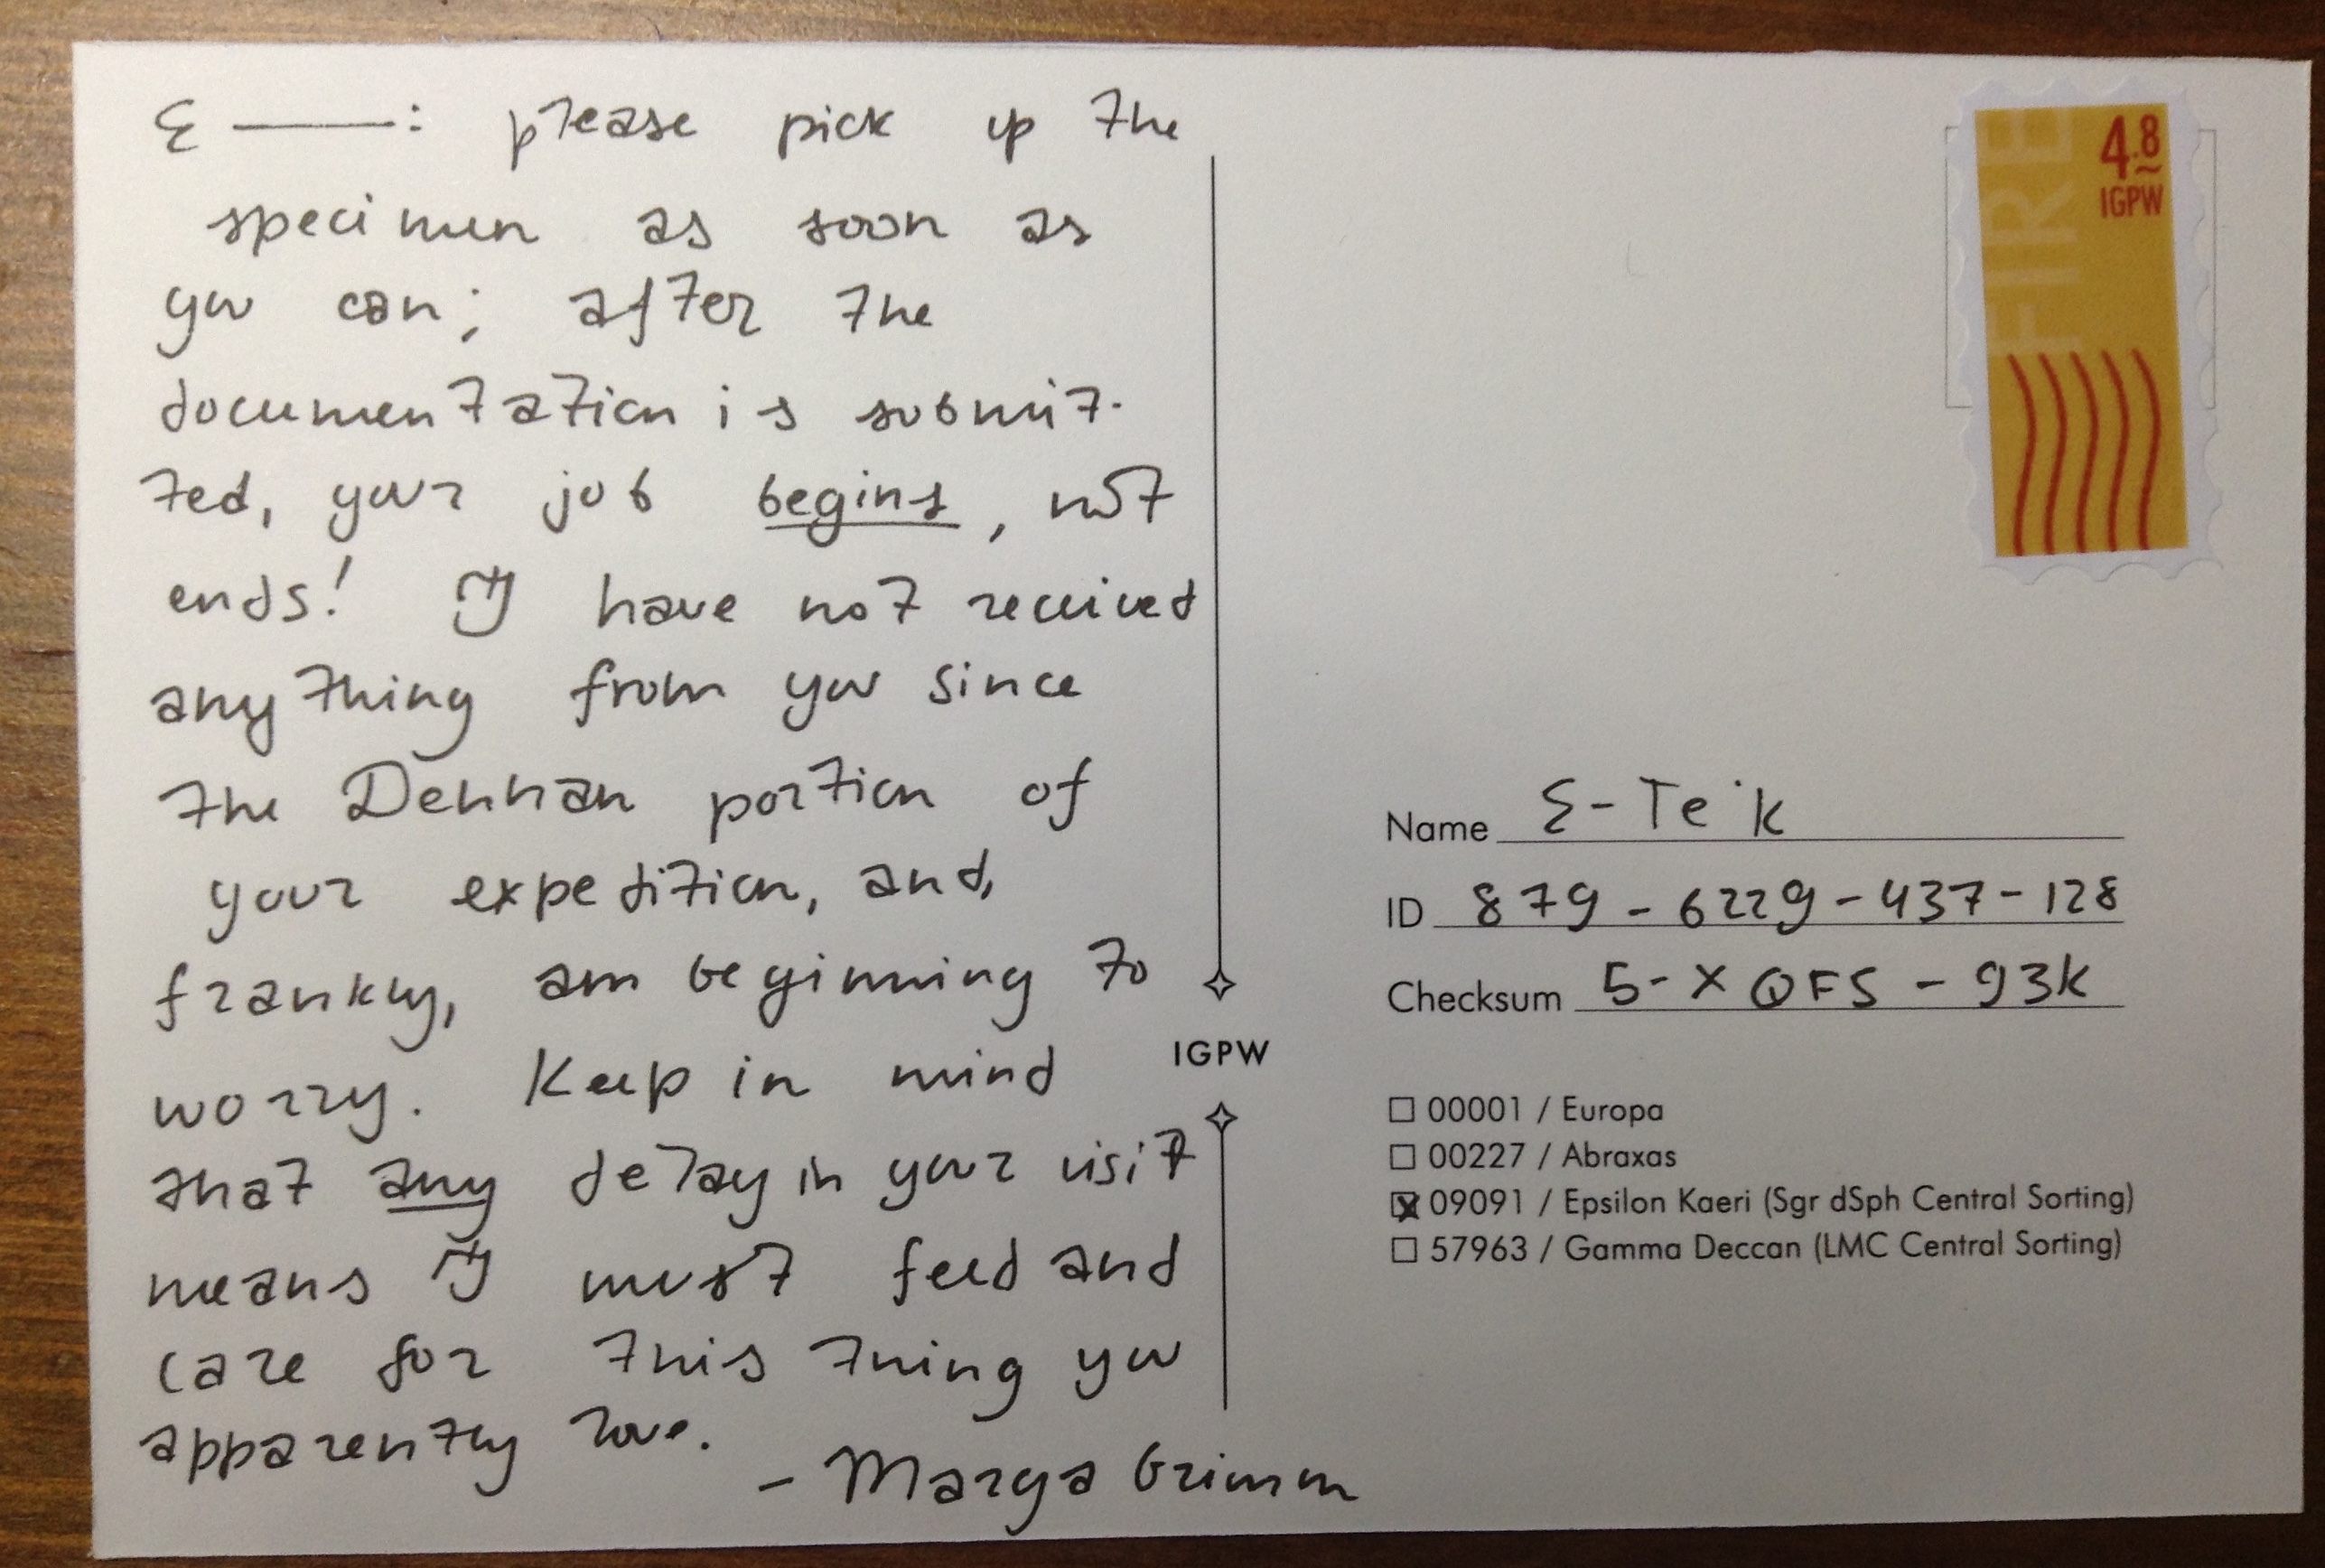 Σ ——: please pick up the
specimen as soon as
you can; after the
documentation is submit-
ted, your job begins, not
ends! I have not received
anything from you since
the Dennan portion of
your expedition, and,
frankly, am beginning to
worry. Keep in mind
that any delay in your visit
means I must feed and
care for this thing you
apparently love.
– Marga Grimm
IGPW
FIRE
4.8
IGPW
Name Σ-Te'k
ID 879-6229-437-128
Checksum 5-XQFS-93K
☐ 00001 / Europa
☐ 00227 / Abraxas
☒ 09091 / Epsilon Kaeri (Sgr dSph Central Sorting)
☐ 57963 / Gamma Deccan (LMC Central Sorting)